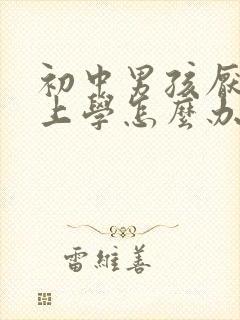 初中男孩厭
上學怎麼办
雷維善